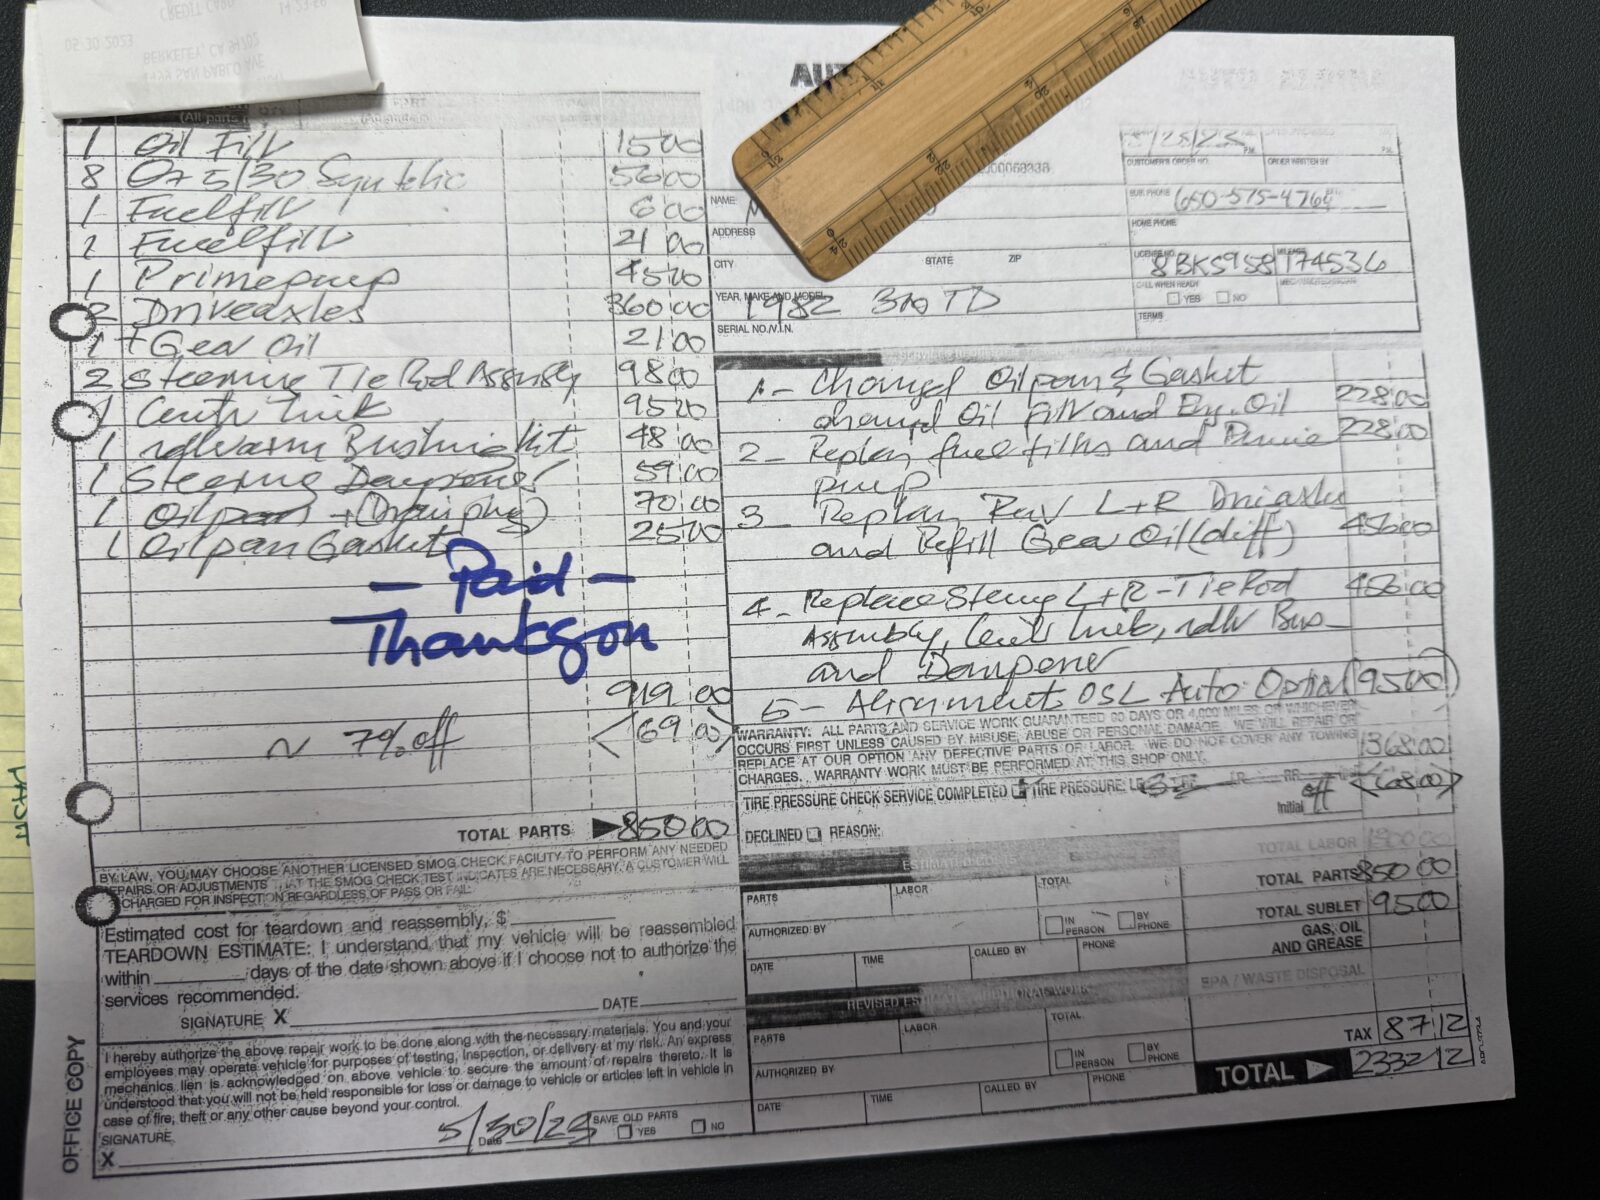 CREDIT CARD 14:23:58
05-30-2023
BERKELEY, CA 94702
1499 SAN PABLO AVE
AUT
(All parts
1 Oil Filtr 15 00
8 Qts 5/30 Synthetic 56 00
1 Fuelfiltr 6 00
1 Fuelfiltr 21 00
1 Primepump 45 00
2 Driveaxles 360 00
1 + Gear Oil 21 00
2 Steering Tie Rod Assmbly 98 00
1 95 00
1 Bushing kit 48 00
1 Steering Dampener 59 00
1 Oilpan + (Drainplug) 70 00
1 Oilpan Gasket 25 00
— Paid —
Thankyou
919 00
~ 7% off <69 00>
TOTAL PARTS 850 00
BY LAW, YOU MAY CHOOSE ANOTHER LICENSED SMOG CHECK FACILITY TO PERFORM ANY NEEDED
REPAIRS OR ADJUSTMENTS THAT THE SMOG CHECK TEST INDICATES ARE NECESSARY. A CUSTOMER WILL
CHARGED FOR INSPECTION REGARDLESS OF PASS OR FAIL.
Estimated cost for teardown and reassembly, $
TEARDOWN ESTIMATE: I understand, that my vehicle will be reassembled
within days of the date shown above if I choose not to authorize the
services recommended.
DATE
SIGNATURE X
I hereby authorize the above repair work to be done along with the necessary materials. You and your
employees may operate vehicle for purposes of testing, inspection, or delivery at my risk. An express
mechanics lien is acknowledged on above vehicle to secure the amount of repairs thereto. It is
understood that you will not be held responsible for loss or damage to vehicle or articles left in vehicle in
case of fire, theft or any other cause beyond your control.
SIGNATURE
X
5/30/23
Date
SAVE OLD PARTS
YES NO
OFFICE COPY
P.M. P.M.
CUSTOMER'S ORDER NO. ORDER WRITTEN BY
NAME
BUS. PHONE
ADDRESS
HOME PHONE
CITY STATE ZIP
LICENSE NO. 8BKS958 MILEAGE 174536
CALL WHEN READY
YES NO
YEAR, MAKE AND MODEL 1982 300 TD
TERMS
SERIAL NO./V.I.N.
1 - Changed Oilpan & Gasket
changed Oil Filtr and Eng. Oil 228 00
2 - Replace fuel filters and Prime 228 00
pump
3 - Replace Rear L+R Driveaxles
and Refill Gear Oil (diff) 456 00
4 - Replace Steering L+R - Tie Rod 456 00
Assembly,
and Dampener
5 - Alignment OSL Auto Optial (95 00)
WARRANTY: ALL PARTS AND SERVICE WORK GUARANTEED 90 DAYS OR 4,000 MILES OR WHICHEVER
OCCURS FIRST UNLESS CAUSED BY MISUSE, ABUSE OR PERSONAL DAMAGE. WE WILL REPAIR OR
REPLACE AT OUR OPTION ANY DEFECTIVE PARTS OR LABOR. WE DO NOT COVER ANY TOWING
CHARGES. WARRANTY WORK MUST BE PERFORMED AT THIS SHOP ONLY.
1368 00
TIRE PRESSURE CHECK SERVICE COMPLETED TIRE PRESSURE:
Initial off <68 00>
DECLINED REASON:
TOTAL LABOR 1300 00
PARTS LABOR TOTAL
TOTAL PARTS 850 00
TOTAL SUBLET 95 00
AUTHORIZED BY IN PERSON BY PHONE
GAS, OIL
AND GREASE
DATE TIME CALLED BY PHONE
EPA / WASTE DISPOSAL
PARTS LABOR TOTAL
TAX 87 12
AUTHORIZED BY IN PERSON BY PHONE
TOTAL 2332 12
DATE TIME CALLED BY PHONE